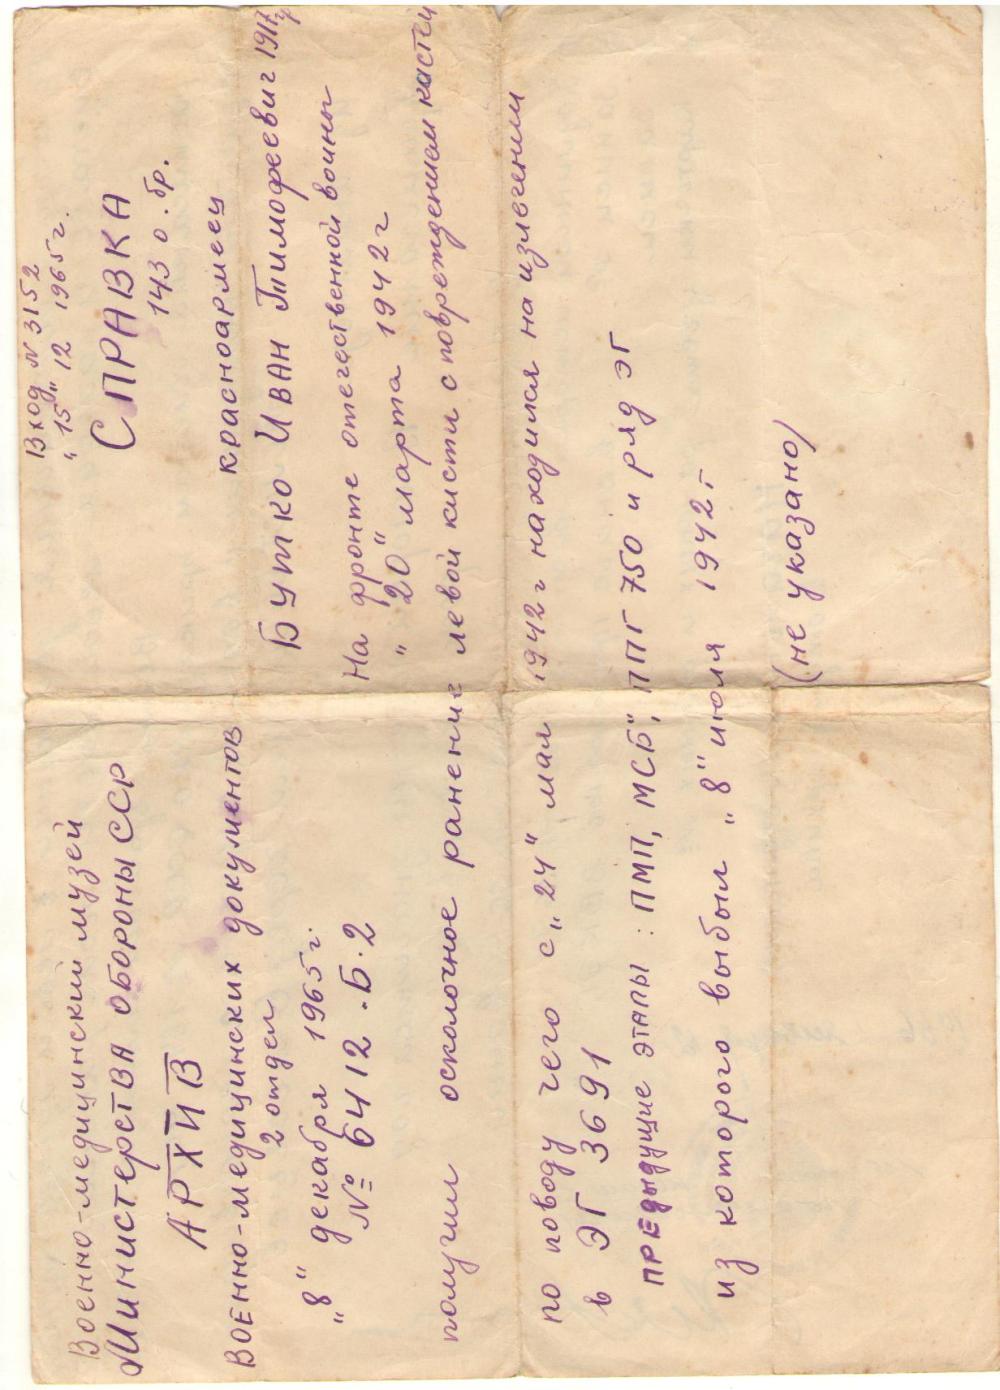 Военно-медицинский музей
Министерства обороны ССР
АРХИВ
Военно-медицинских документов
2 отдел
„8" декабря 1965 г.
№ 6412 . Б . 2
Вход N 3152
„15" 12 1965 г.
СПРАВКА
143 о. бр.
красноармеец
Бутко Иван Тимофеевич 1917 г
На фронте отечественной войны
„20" марта 1942 г
получил осколочное ранение левой кисти с повреждением костей
по поводу чего с „24" мая 1942 г находился на излечении
в ЭГ 3691
ПРЕДЫДУЩИЕ ЭТАПЫ : ПМП, МСБ", ППГ 750 и ряд ЭГ
из которого выбыл „8" июля 1942 г
(не указано)